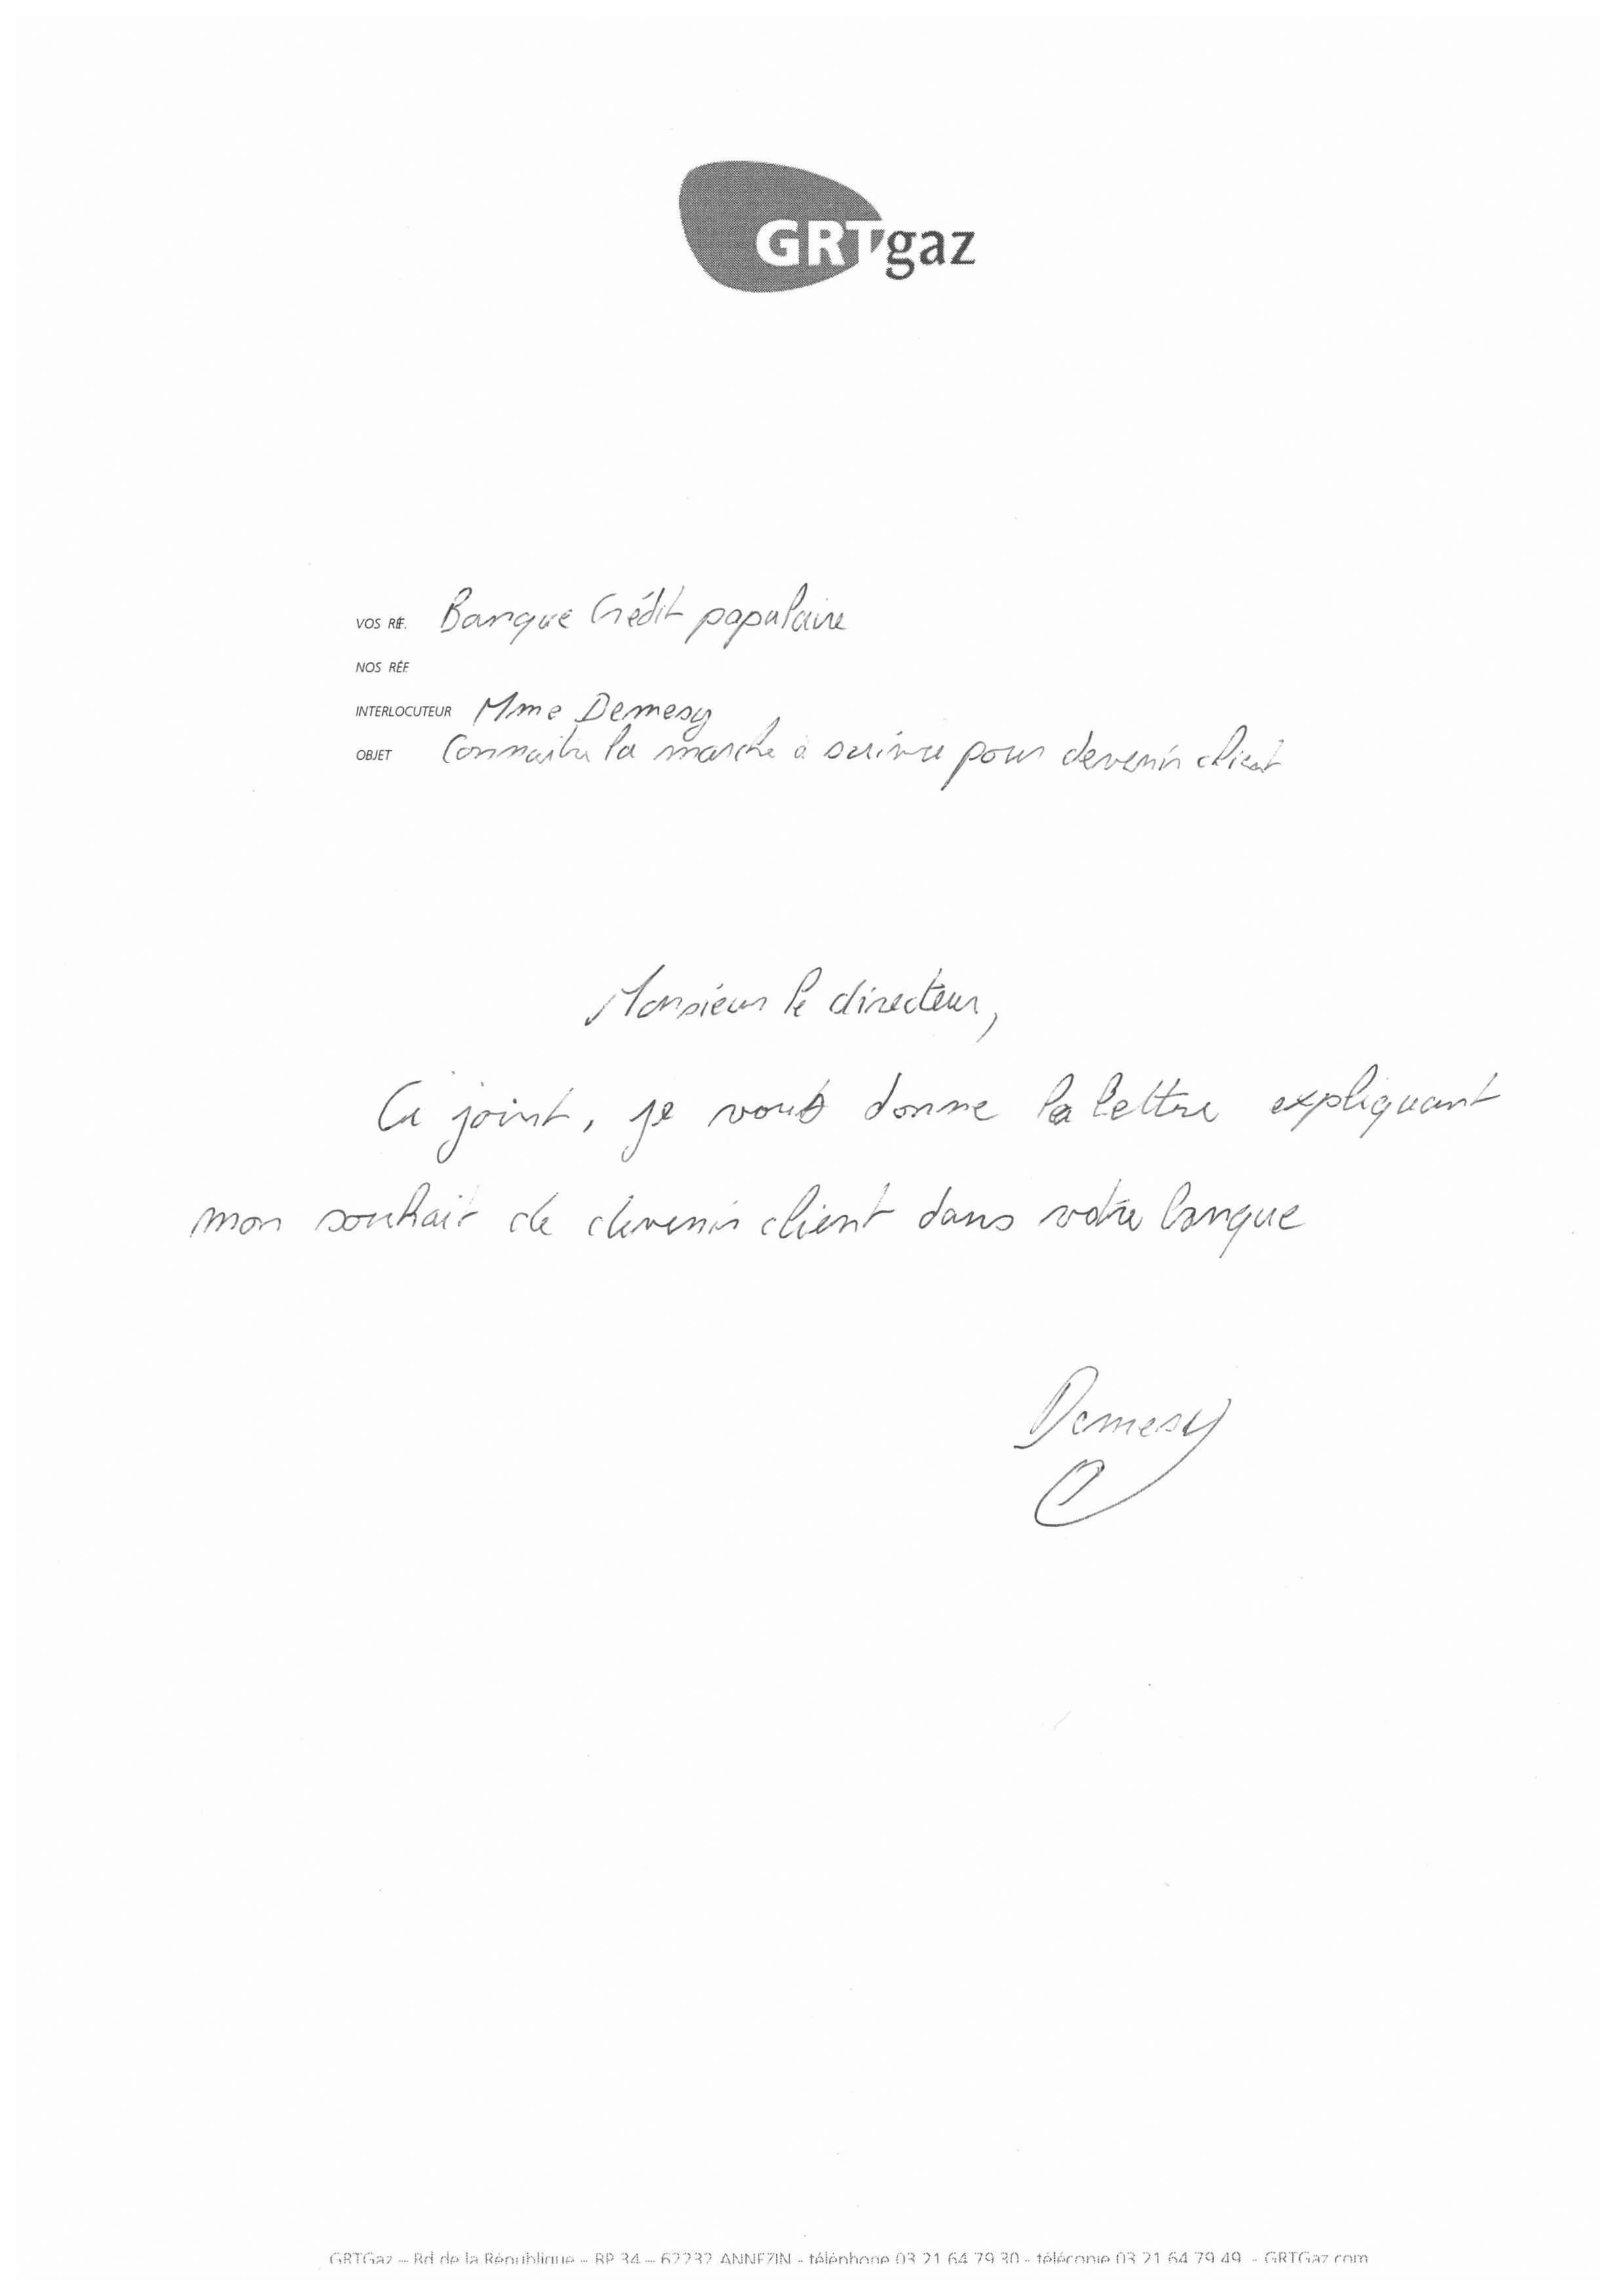 GRTgaz
VOS RÉF. Banque Crédit populaire
NOS RÉF
INTERLOCUTEUR Mme Demesy
OBJET Connaitre la marche à suivre pour devenir client
Monsieur le directeur,
Ci joint, je vous donne la lettre expliquant
mon souhait de devenir client dans votre banque
Demesy
GRTGaz – Bd de la République – BP 34 – 62232 ANNEZIN - téléphone 03 21 64 79 30 - télécopie 03 21 64 79 49 - GRTGaz.com